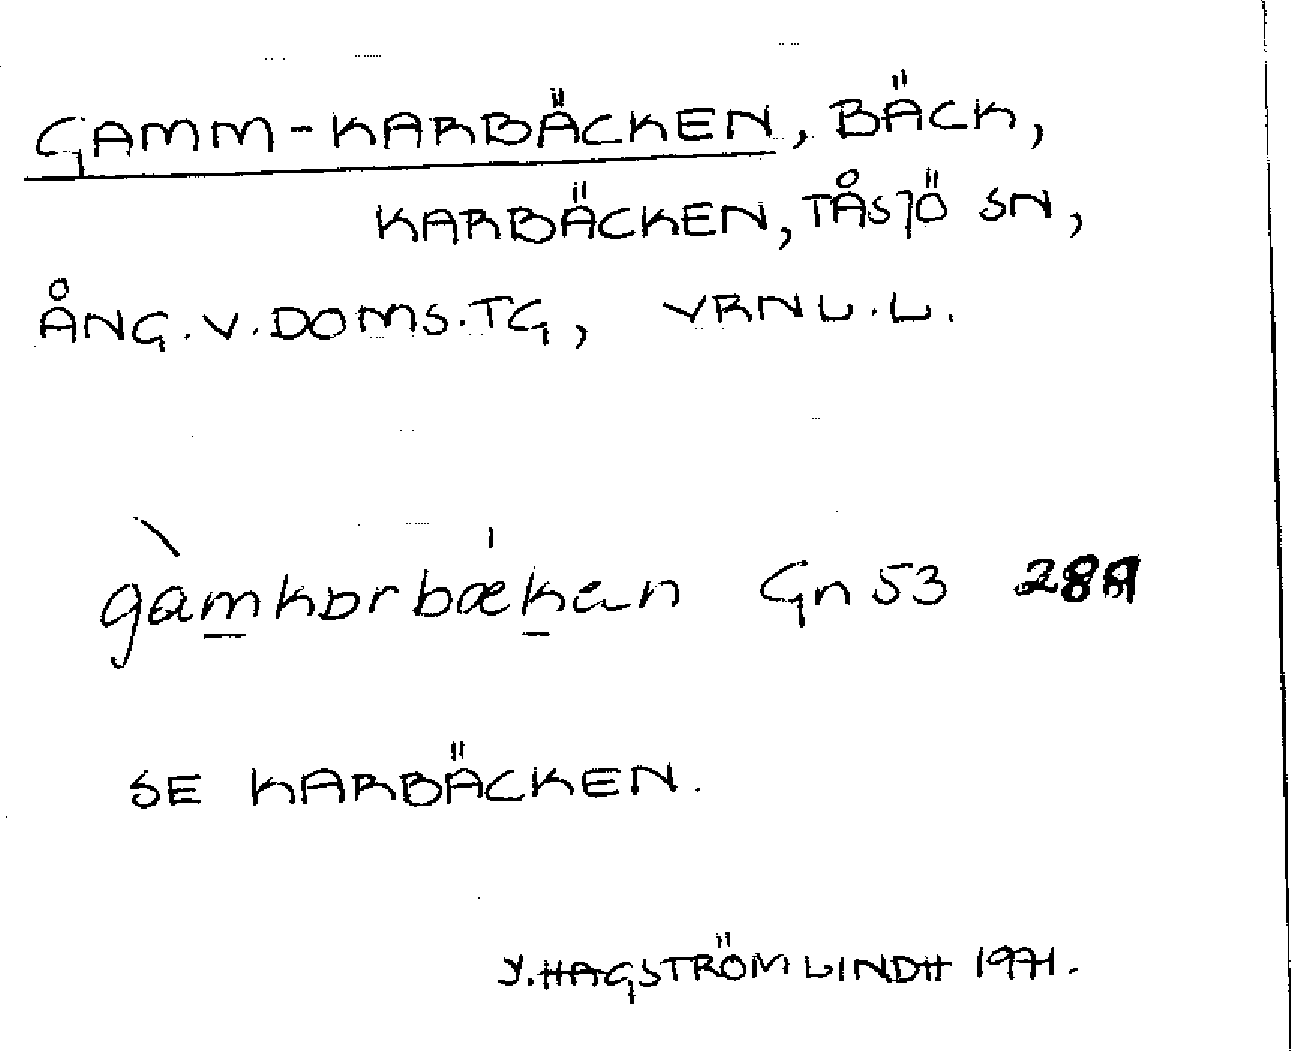 GAMM-KARBÄCKEN, BÄCK,
KARBÄCKEN, TÅSJÖ SN,
ÅNG. V. DOMS. TG, VRNL. L.
gàmkɒrbækan Gn 53
SE KARBÄCKEN.
Y. HAGSTRÖM LINDH 1971.